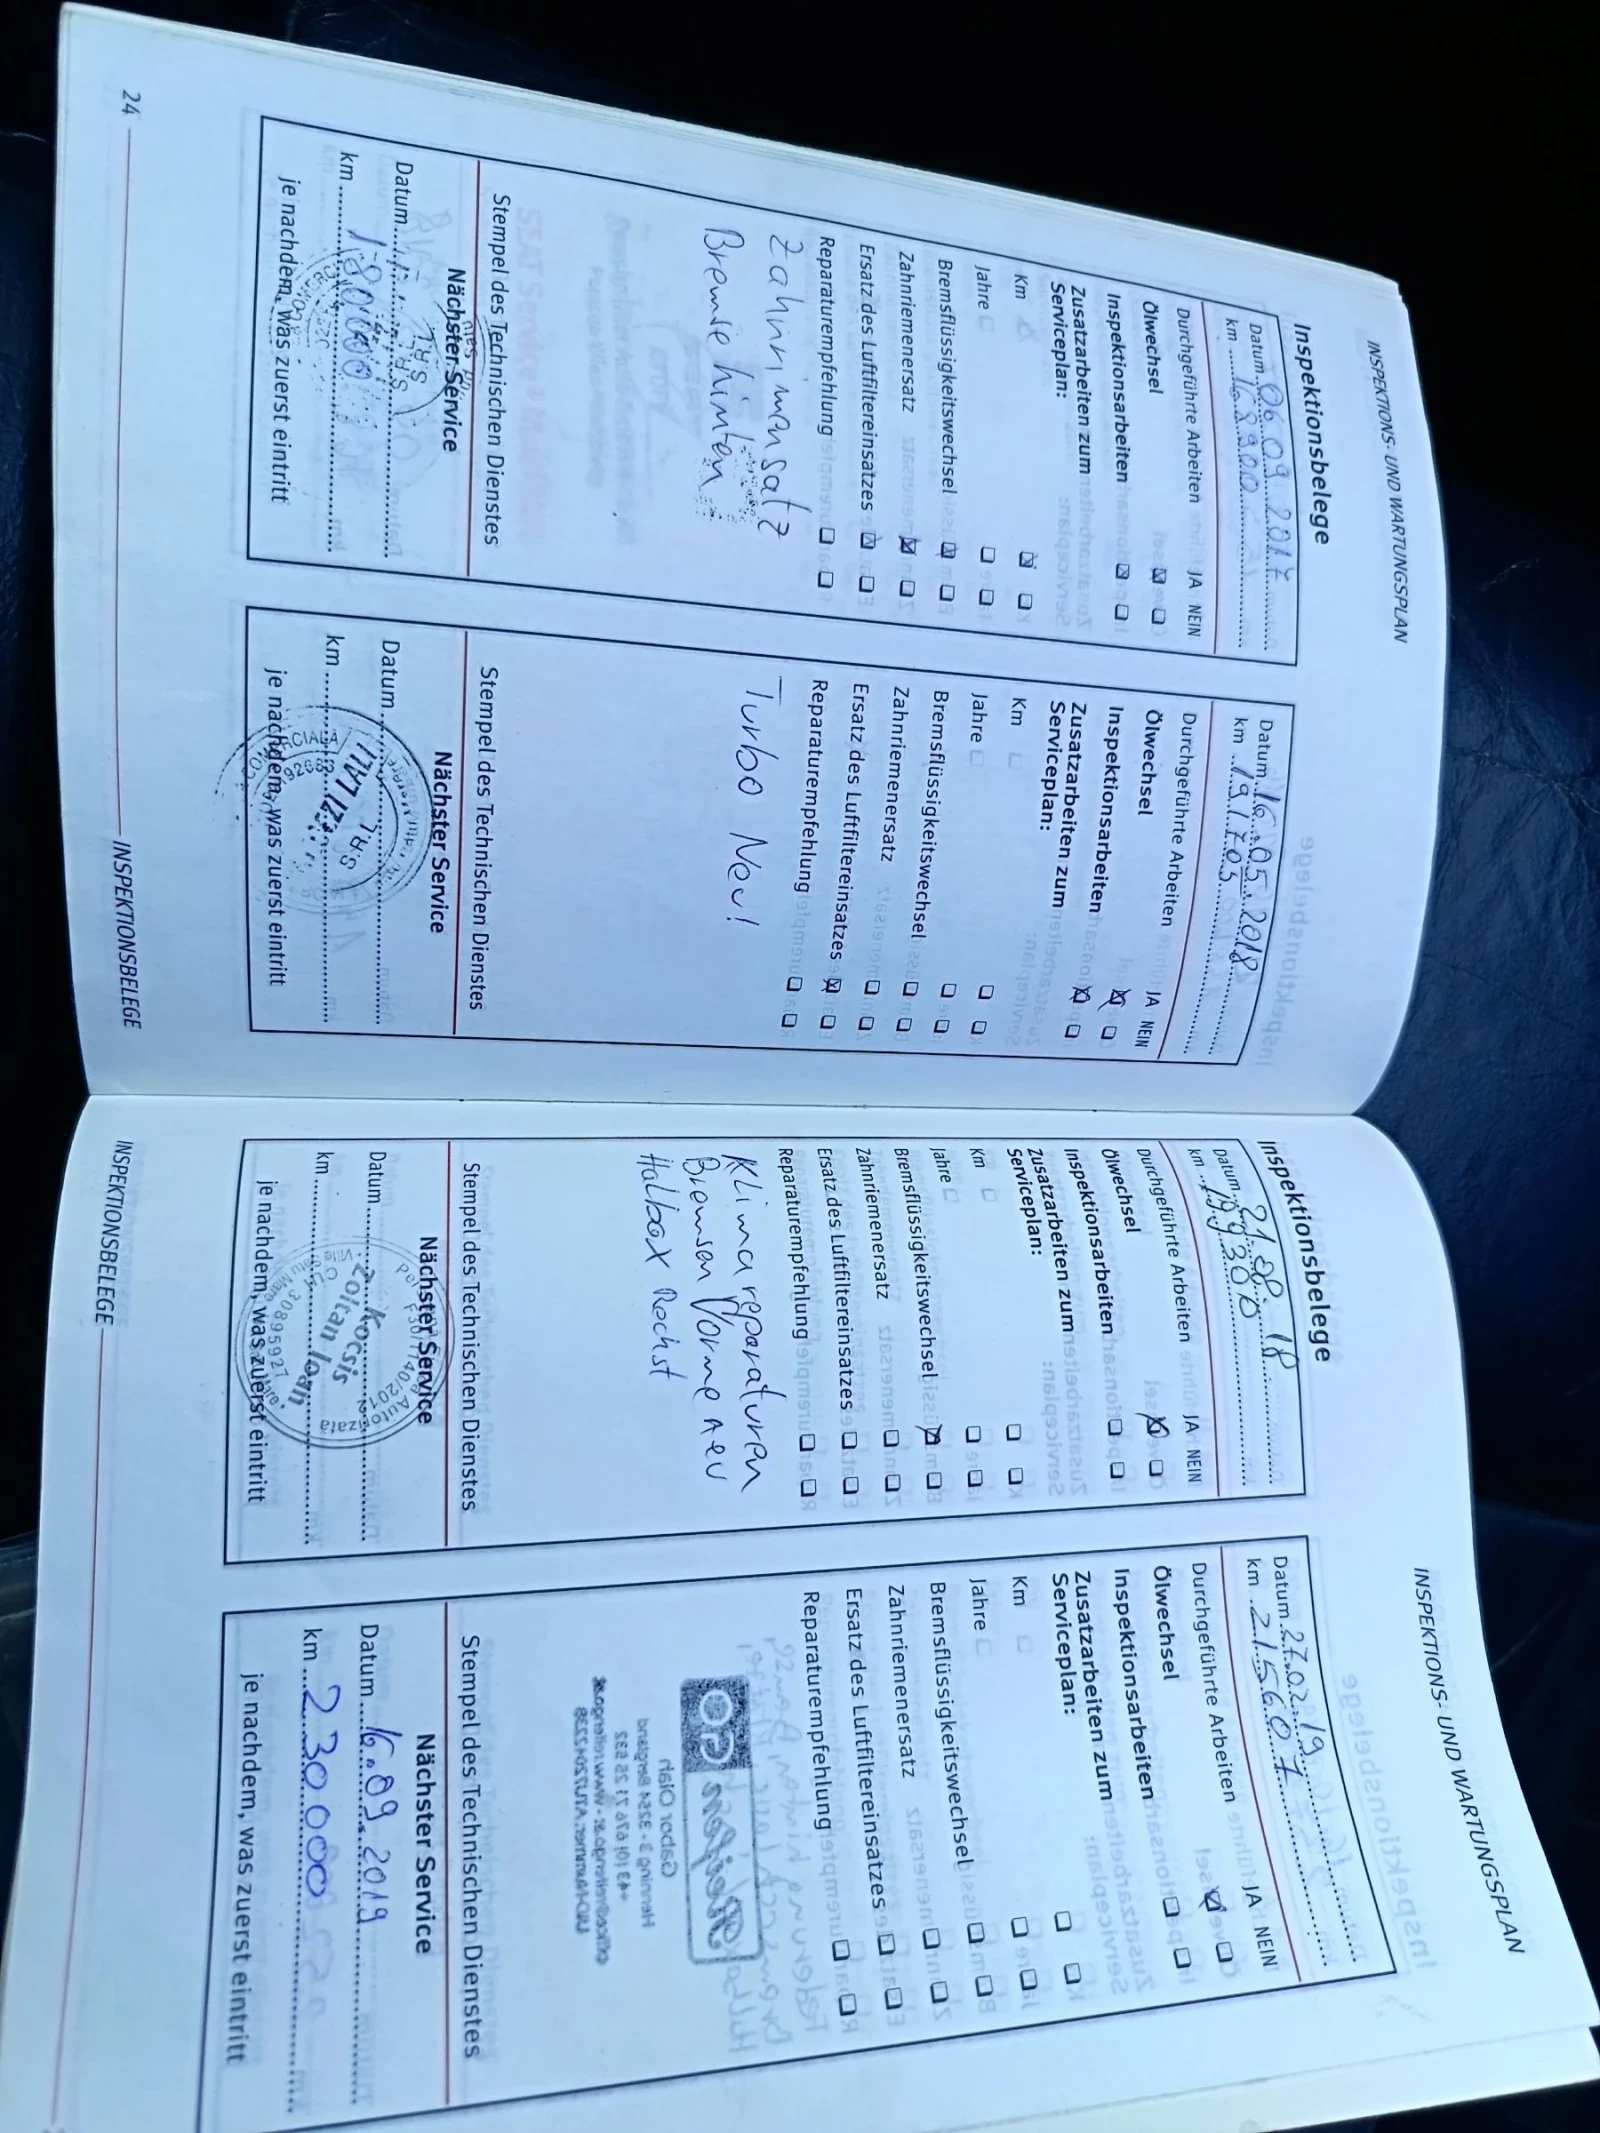 INSPEKTIONS- UND WARTUNGSPLAN
Inspektionsbelege
Datum 06.09.2017
km 168900
Durchgeführte Arbeiten JA NEIN
Ölwechsel
Inspektionsarbeiten
Zusatzarbeiten zum
Serviceplan:
Km
Jahre
Bremsflüssigkeitswechsel
Zahnriemenersatz
Ersatz des Luftfiltereinsatzes
Reparaturempfehlung
Zahnrimensatz
Bremse hinten
Stempel des Technischen Dienstes
Nächster Service
Datum
km 180000
je nachdem, was zuerst eintritt
Datum 16.05.2018
km 191703
Durchgeführte Arbeiten JA NEIN
Ölwechsel
Inspektionsarbeiten
Zusatzarbeiten zum
Serviceplan:
Km
Jahre
Bremsflüssigkeitswechsel
Zahnriemenersatz
Ersatz des Luftfiltereinsatzes
Reparaturempfehlung
Turbo Neu!
Stempel des Technischen Dienstes
Nächster Service
Datum
km
je nachdem, was zuerst eintritt
24 INSPEKTIONSBELEGE
Inspektionsbelege
Datum 21.08.18
km 199300
Durchgeführte Arbeiten JA NEIN
Ölwechsel
Inspektionsarbeiten
Zusatzarbeiten zum
Serviceplan:
Km
Jahre
Bremsflüssigkeitswechsel
Zahnriemenersatz
Ersatz des Luftfiltereinsatzes
Reparaturempfehlung
Klimareparaturen
Bremsen Vorme neu
Halbax Rechst
Stempel des Technischen Dienstes
Nächster Service
Datum
km
Kocsis
Zoltan Ioan
30895927
je nachdem, was zuerst eintritt
INSPEKTIONS- UND WARTUNGSPLAN
Datum 27.02.19
km 215607
Durchgeführte Arbeiten JA NEIN
Ölwechsel
Inspektionsarbeiten
Zusatzarbeiten zum
Serviceplan:
Km
Jahre
Bremsflüssigkeitswechsel
Zahnriemenersatz
Ersatz des Luftfiltereinsatzes
Reparaturempfehlung
Stempel des Technischen Dienstes
Nächster Service
Datum 16.09.2019
km 230000
je nachdem, was zuerst eintritt
INSPEKTIONSBELEGE